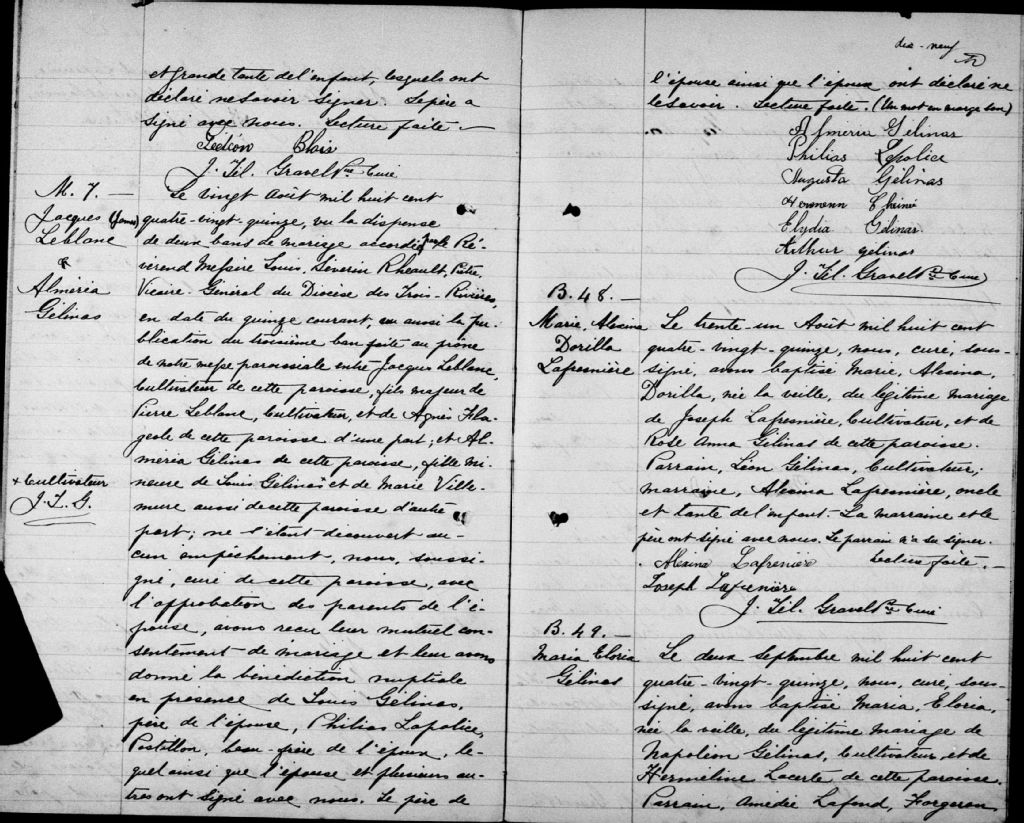 et grande tante de l'enfant, lesquels ont
déclaré ne savoir signer. Le père a
signé avec nous. Lecture faite.
Blais
J. Fél. Gravel Ptre Curé
M. 7. —
Jacques
Leblanc
&
Alméria
Gélinas
Le vingt Août mil huit cent
quatre-vingt-quinze, vu la dispense
de deux bans de mariage accordée par le Ré-
vérend Messire Louis, Séverin Rheault, Ptre,
Vicaire-Général du Diocèse des Trois-Rivières,
en date du quinze courant, vu aussi la pu-
blication du troisième ban faite au prône
de notre messe paroissiale entre Jacques Leblanc,
Cultivateur de cette paroisse, fils majeur de
Pierre Leblanc, Cultivateur, et de Agnès
de cette paroisse d'une part; et Al-
méria Gélinas de cette paroisse, fille mi-
neure de Louis Gélinas + et de Marie Ville-
mure aussi de cette paroisse d'autre
part; ne l'étant découvert au-
cun empêchement, nous, soussi-
gné, curé de cette paroisse, avec
l'approbation des parents de l'é-
pouse, avons reçu leur mutuel con-
sentement de mariage et leur avons
donné la bénédiction nuptiale
en présence de Louis Gélinas,
père de l'épouse, Philias Lapolice,
Postillon, beau-frère de l'époux, le-
quel ainsi que l'épouse et plusieurs au-
tres ont signé avec nous. Le père de
+ Cultivateur
J. F. G.
dix-neuf
l'épouse ainsi que l'époux ont déclaré ne
le savoir. Lecture faite. (Un mot en marge bon)
Alméria Gélinas
Philias Lapolice
Augusta Gélinas
Elydia Gélinas
Arthur gélinas
J. Fél. Gravel Ptre Curé
B. 48. —
Marie, Alexina
Dorilla
Lafresnière
Le trente-un Août mil huit cent
quatre-vingt-quinze, nous, curé, sous-
signé, avons baptisé Marie, Alexina,
Dorilla, née la veille, du légitime mariage
de Joseph Lafresnière, Cultivateur, et de
Rose Anna Gélinas de cette paroisse.
Parrain, Léon Gélinas, Cultivateur;
marraine, Alexina Lafresnière, oncle
et tante de l'enfant. La marraine et le
père ont signé avec nous. Le parrain n'a su signer.
Alexina Lafrenière Lecture faite. —
Joseph Lafrenière
J. Fél. Gravel Ptre Curé
B. 49. —
Maria Eloria
Gélinas
Le deux Septembre mil huit cent
quatre-vingt-quinze, nous, curé, sous-
signé, avons baptisé Maria, Eloria,
née la veille, du légitime mariage de
Napoléon Gélinas, Cultivateur, et de
Hermeline Lacerte de cette paroisse.
Parrain, Amédée Lafond, Forgeron